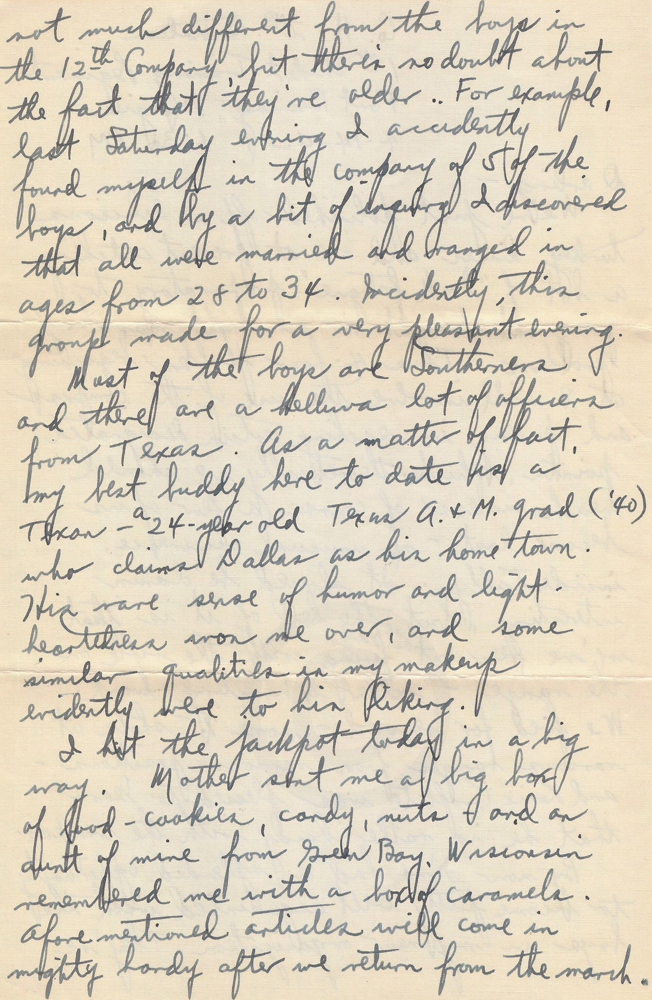 not much different from the boys in
the 12th Company, but there's no doubt about
the fact that they're older .. For example,
last Saturday evening I accidently
found myself in the company of 5 of the
boys, and by a bit of inquiry I discovered
that all were married and ranged in
ages from 28 to 34. Incidently, this
group made for a very pleasant evening.
Most of the boys are Southerners
and there are a helluva lot of officers
from Texas. As a matter of fact,
my best buddy here to date is a
Texan - a 24-year old Texas A. & M. grad ('40)
who claims Dallas as his home town.
His rare sense of humor and light-
heartedness won me over, and some
similar qualities in my makeup
evidently were to his liking.
I hit the jackpot today in a big
way. Mother sent me a big box
of food - cookies, candy, nuts - and an
aunt of mine from Green Bay, Wisconsin
remembered me with a box of caramels.
Afore mentioned articles will come in
mighty handy after we return from the march.